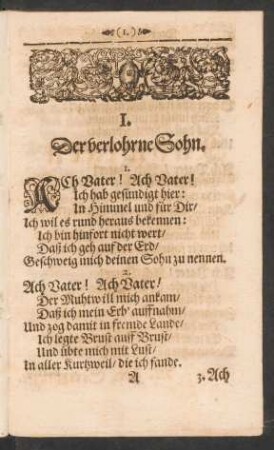 (1.)
I.
Der verlohrne Sohn.
1.
ACh Vater! Ach Vater!
Ich hab gesündigt hier:
In Himmel und für Dir/
Ich wil es rund heraus bekennen:
Ich bin hinfort nicht wert/
Daß ich geh auf der Erd/
Geschweig mich deinen Sohn zu nennen.
2.
Ach Vater! Ach Vater/
Der Muhtwill mich ankam/
Daß ich mein Erb' auffnahm/
Und zog damit in fremde Lande/
Ich legte Brust auff Brust/
Und übte mich mit Lust/
In aller Kurtzweil/ die ich fande.
A 3. Ach